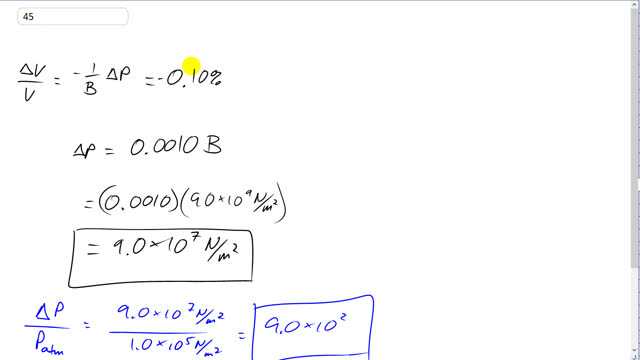 45
ΔV/V = -1/B ΔP = -0.10%
ΔP = 0.0010 B
= (0.0010)(90×10⁹ N/m²)
= 9.0×10⁷ N/m²
ΔP/Patm = 9.0×10⁷ N/m² / 1.0×10⁵ N/m² = 9.0×10²